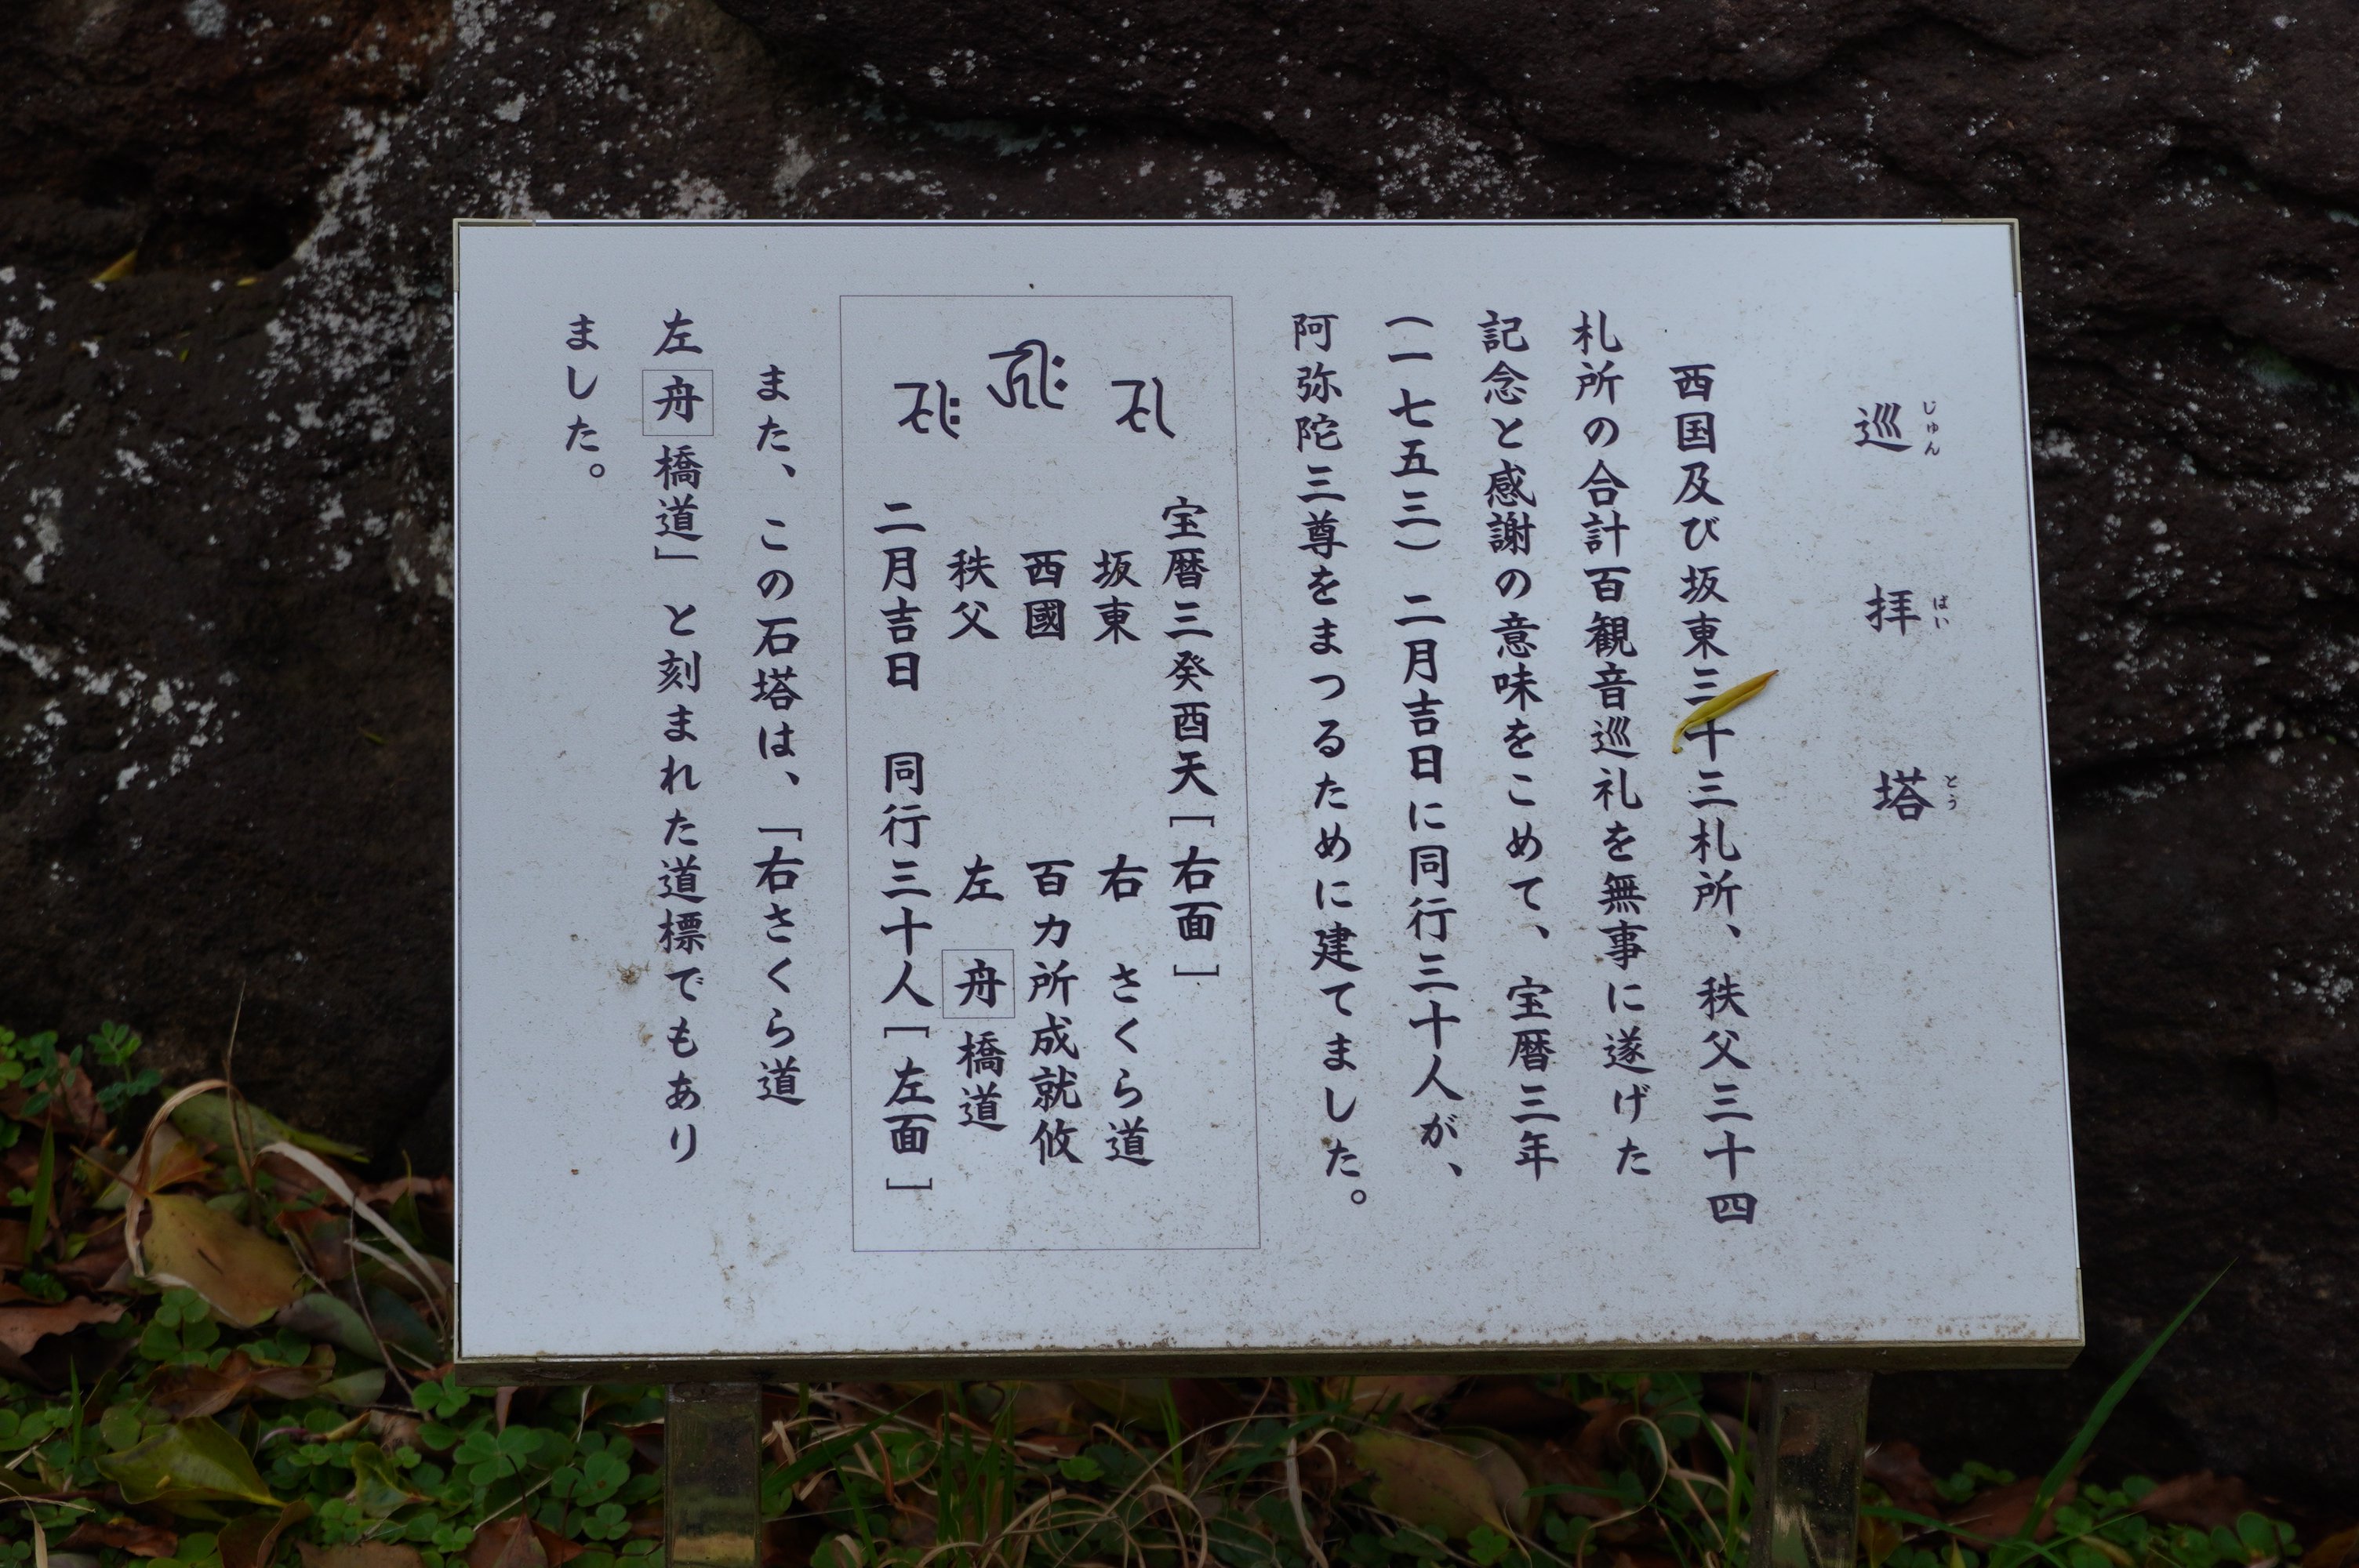 巡拝塔
じゅんぱいとう
西国及び坂東三十三札所、秩父三十四
札所の合計百観音巡礼を無事に遂げた
記念と感謝の意味をこめて、宝暦三年
(一七五三)二月吉日に同行三十人が、
阿弥陀三尊をまつるために建てました。
宝暦三癸酉天[右面]
坂東 右 さくら道
西國 百カ所成就攸
秩父 左 舟橋道
二月吉日 同行三十人[左面]
また、この石塔は、「右さくら道
左舟橋道」と刻まれた道標でもあり
ました。